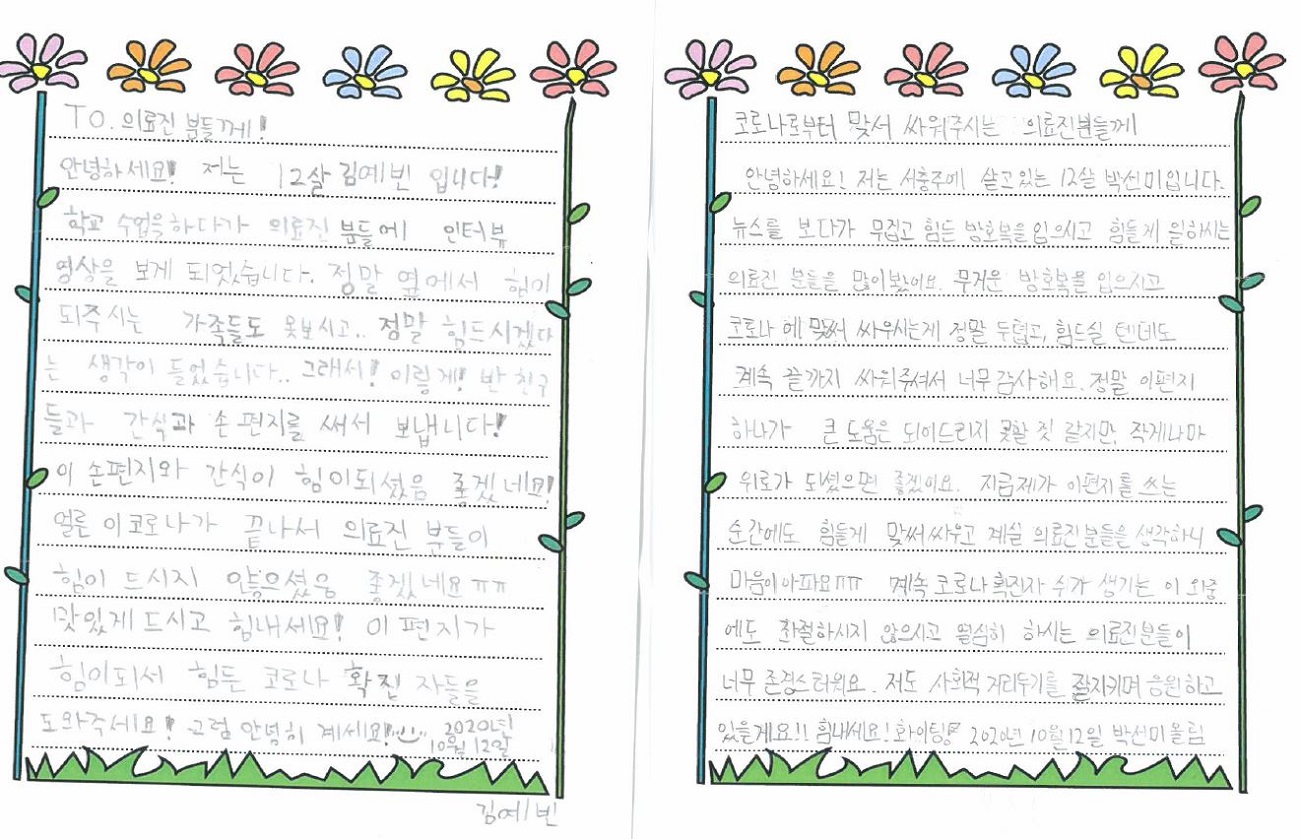 TO. 의료진 분들께!
안녕하세요! 저는 12살 김예빈 입니다!
학교 수업을하다가 의료진 분들에 인터뷰
영상을 보게 되었습니다. 정말 옆에서 힘이
되주시는 가족들도 못보시고.. 정말 힘드시겠다
는 생각이 들었습니다.. 그래서! 이렇게! 반 친구
들과 간식과 손 편지를 써서 보냅니다!
이 손편지와 간식이 힘이되셨음 좋겠네요!
얼른 이코로나가 끝나서 의료진 분들이
힘이 드시지 않으셨음 좋겠네요ㅠㅠ
맛있게 드시고 힘내세요! 이 편지가
힘이되서 힘든 코로나 확진 자들을
도와주세요! 그럼 안녕히 계세요!
2020년
10월 12일
김예빈
코로나로부터 맞서 싸워주시는 의료진분들께
안녕하세요! 저는 서충주에 살고있는 12살 박선미입니다.
뉴스를 보다가 무겁고 힘든 방호복을입으시고 힘들게 일하시는
의료진 분들을 많이봤어요. 무거운 방호복을 입으시고
코로나 에 맞써 싸우시는게 정말 두렵고, 힘드실 텐데도
계속 끝까지 싸워주셔서 너무감사해요. 정말 이편지
하나가 큰 도움은 되어드리지 못할 것 같지만, 작게나마
위로가 되셨으면 좋겠어요. 지금제가 이편지를 쓰는
순간에도 힘들게 맞써싸우고 계실 의료진분들을 생각하니
마음이아파요ㅠㅠ 계속 코로나 확진자 수가 생기는 이 와중
에도 좌절하시지 않으시고 열심히 하시는 의료진분들이
너무 존경스러워요. 저도 사회적 거리두기를 잘지키며 응원하고
있을게요!! 힘내세요! 화이팅 2020년 10월12일 박선미올림